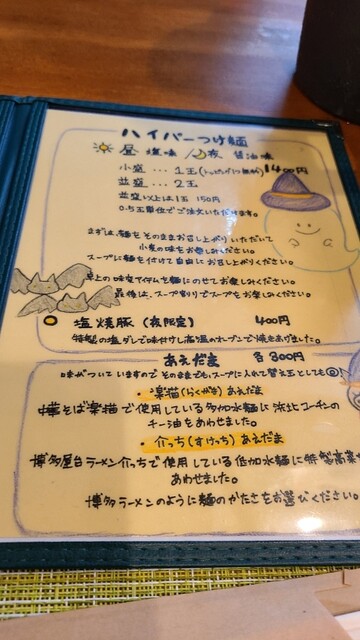 ハイパーつけ麺
昼 塩味 夜 醤油味
小盛 … 1玉 1400円
並盛 … 2玉
並盛以上は1玉 150円
0.5玉単位でご注文いただけます。
まずは、麺をそのままお召し上がりいただいて
小麦の味をお楽しみください。
スープに麺を付けて自由にお召し上がりください。
上の味変アイテムを麺にのせてお楽しみください。
最後は、スープ割りでスープをお楽しみください。
塩焼豚(夜限定) 400円
特製の塩ダレで味付けし高温のオーブンで焼きあげました。
あえだま 各300円
味がついていますのでそのままでも、スープに入れて替え玉としても◎
・楽猫(らくがき)あえだま
中華そば楽猫で使用している多加水麺に浜北コーチンの
チー油をあわせました。
・介っち(すけっち)あえだま
博多屋台ラーメン介っちで使用している低加水麺に特製高菜
あわせました。
博多ラーメンのように麺のかたさをお選びください。